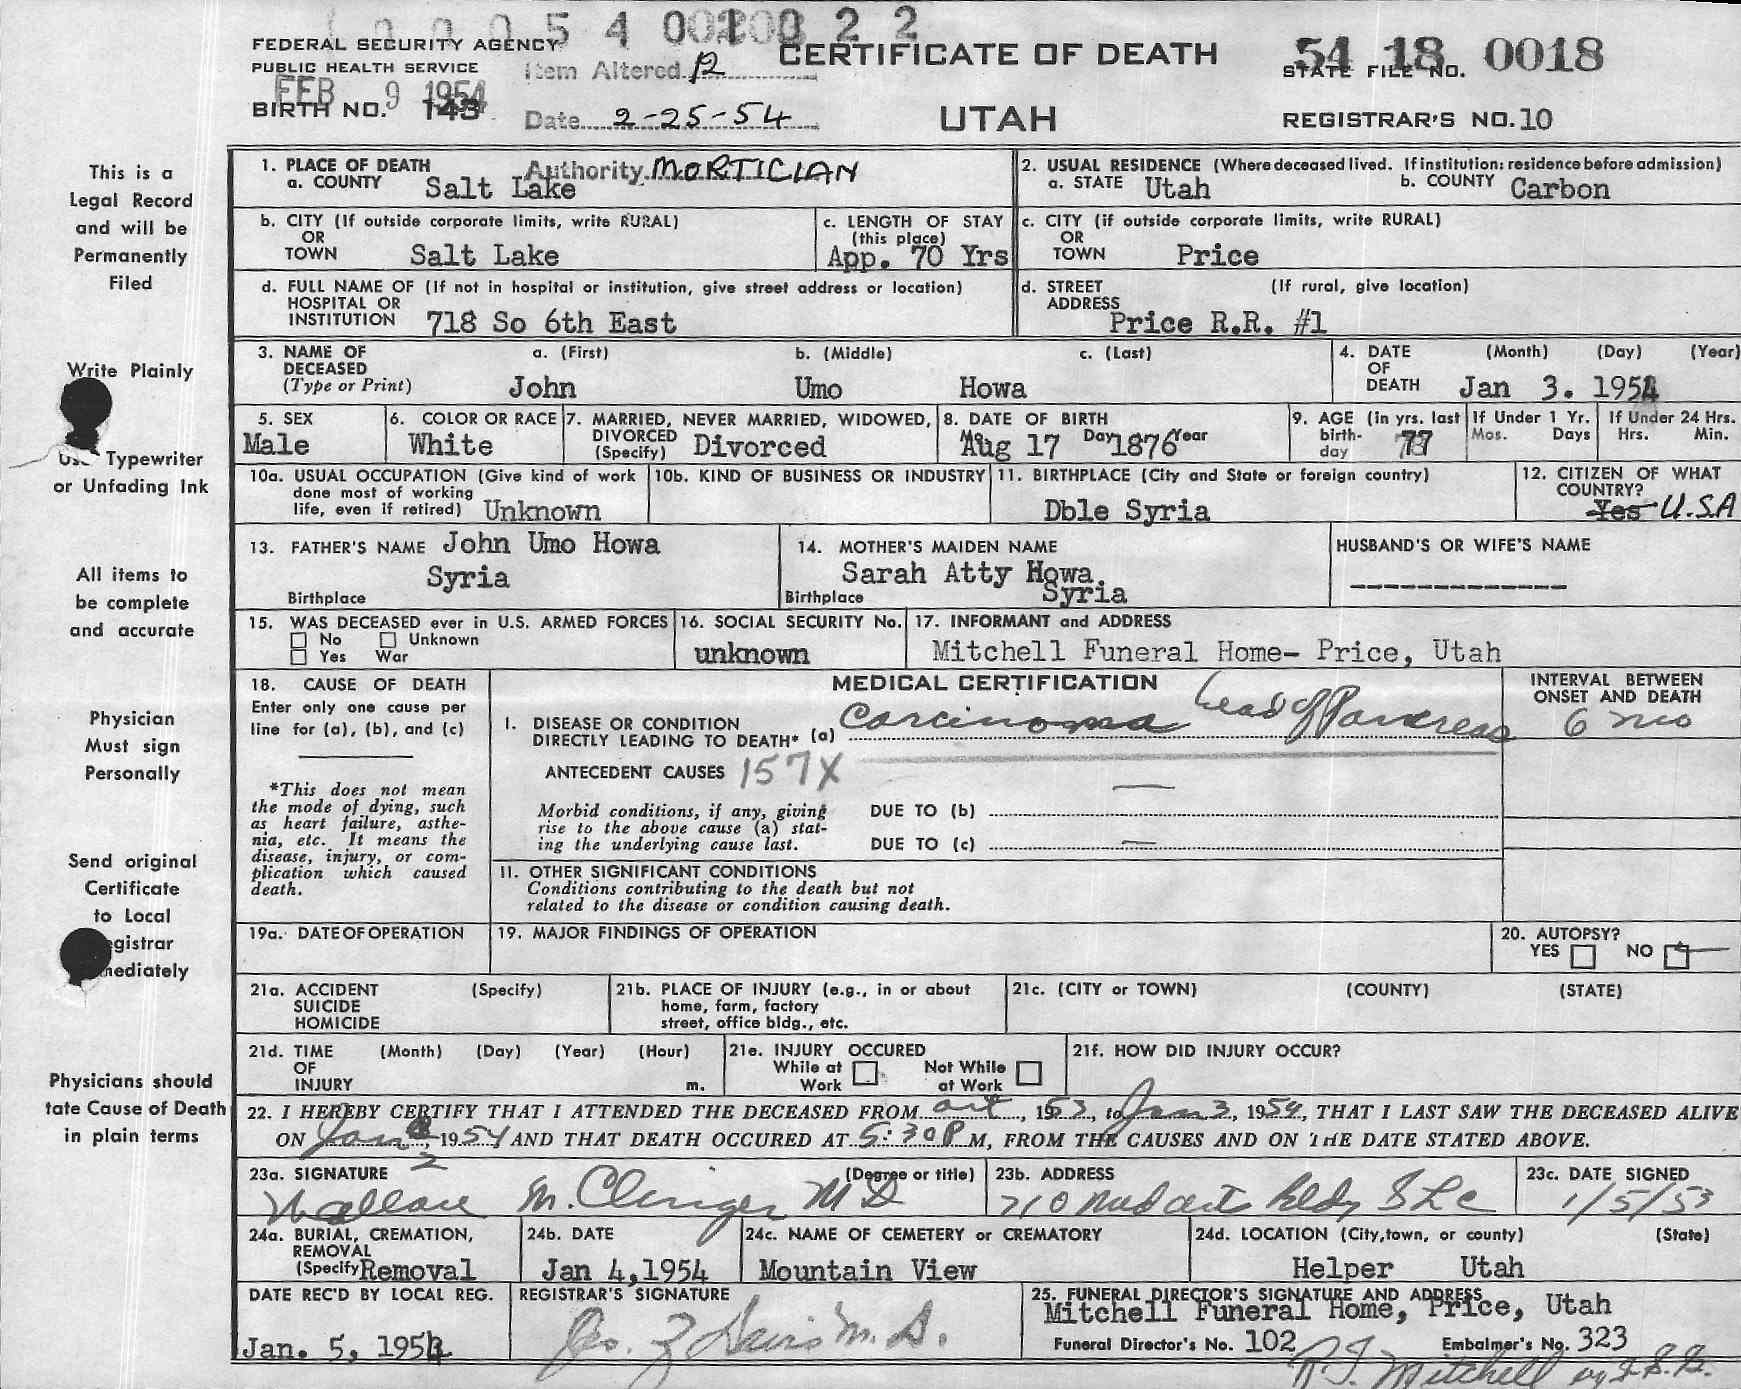 FEDERAL SECURITY AGENCY
PUBLIC HEALTH SERVICE
FEB 9 1954
BIRTH NO. 143
Item Altered R
Date 2-25-54
Authority MORTICIAN
CERTIFICATE OF DEATH
UTAH
STATE FILE NO. 54 18 0018
REGISTRAR'S NO. 10
This is a
Legal Record
and will be
Permanently
Filed
Write Plainly
Typewriter
or Unfading Ink
All items to
be complete
and accurate
Physician
Must sign
Personally
Send original
Certificate
to Local
Physicians should
tate Cause of Death
in plain terms
1. PLACE OF DEATH
a. COUNTY Salt Lake
2. USUAL RESIDENCE (Where deceased lived. If institution: residence before admission)
a. STATE Utah b. COUNTY Carbon
b. CITY (If outside corporate limits, write RURAL)
OR
TOWN Salt Lake
c. LENGTH OF STAY
(this place)
App. 70 Yrs
c. CITY (if outside corporate limits, write RURAL)
OR
TOWN Price
d. FULL NAME OF (If not in hospital or institution, give street address or location)
HOSPITAL OR
INSTITUTION 718 So 6th East
d. STREET (If rural, give location)
ADDRESS
Price R.R. #1
3. NAME OF a. (First) b. (Middle) c. (Last)
DECEASED
(Type or Print) John Umo Howa
4. DATE (Month) (Day) (Year)
OF
DEATH Jan 3. 1954
5. SEX
Male
6. COLOR OR RACE
White
7. MARRIED, NEVER MARRIED, WIDOWED,
DIVORCED
(Specify) Divorced
8. DATE OF BIRTH
Aug 17 Day 1876 Year
9. AGE (in yrs. last
birth-
day 77
If Under 1 Yr.
Mos. Days
If Under 24 Hrs.
Hrs. Min.
10a. USUAL OCCUPATION (Give kind of work
done most of working
life, even if retired) Unknown
10b. KIND OF BUSINESS OR INDUSTRY
11. BIRTHPLACE (City and State or foreign country)
Dble Syria
12. CITIZEN OF WHAT
COUNTRY?
Yes U.S.A
13. FATHER'S NAME John Umo Howa
Syria
Birthplace
14. MOTHER'S MAIDEN NAME
Sarah Atty Howa.
Birthplace Syria
HUSBAND'S OR WIFE'S NAME
15. WAS DECEASED ever in U.S. ARMED FORCES
No Unknown
Yes War
16. SOCIAL SECURITY No.
unknown
17. INFORMANT and ADDRESS
Mitchell Funeral Home- Price, Utah
18. CAUSE OF DEATH
Enter only one cause per
line for (a), (b), and (c)
*This does not mean
the mode of dying, such
as heart failure, asthe-
nia, etc. It means the
disease, injury, or com-
plication which caused
death.
MEDICAL CERTIFICATION
I. DISEASE OR CONDITION
DIRECTLY LEADING TO DEATH* (a) Carcinoma head of Pancreas
INTERVAL BETWEEN
ONSET AND DEATH
6 mo
ANTECEDENT CAUSES 157X
Morbid conditions, if any, giving
rise to the above cause (a) stat-
ing the underlying cause last.
DUE TO (b)
DUE TO (c)
11. OTHER SIGNIFICANT CONDITIONS
Conditions contributing to the death but not
related to the disease or condition causing death.
19a. DATE OF OPERATION
19. MAJOR FINDINGS OF OPERATION
20. AUTOPSY?
YES NO
21a. ACCIDENT (Specify)
SUICIDE
HOMICIDE
21b. PLACE OF INJURY (e.g., in or about
home, farm, factory
street, office bldg., etc.
21c. (CITY or TOWN) (COUNTY) (STATE)
21d. TIME (Month) (Day) (Year) (Hour)
OF
INJURY m.
21e. INJURY OCCURED
While at Work Not While at Work
21f. HOW DID INJURY OCCUR?
22. I HEREBY CERTIFY THAT I ATTENDED THE DECEASED FROM oct, 1953, to Jan 3, 1954, THAT I LAST SAW THE DECEASED ALIVE
ON Jan 2, 1954 AND THAT DEATH OCCURED AT 5:30 P M, FROM THE CAUSES AND ON THE DATE STATED ABOVE.
23a. SIGNATURE (Degree or title)
Wallace M. Clinger MD
23b. ADDRESS
710 Med arts bldg SLC
23c. DATE SIGNED
1/5/53
24a. BURIAL, CREMATION,
REMOVAL
(Specify Removal
24b. DATE
Jan 4, 1954
24c. NAME OF CEMETERY or CREMATORY
Mountain View
24d. LOCATION (City, town, or county) (State)
Helper Utah
DATE REC'D BY LOCAL REG.
Jan. 5, 1954
REGISTRAR'S SIGNATURE
25. FUNERAL DIRECTOR'S SIGNATURE AND ADDRESS
Mitchell Funeral Home, Price, Utah
Funeral Director's No. 102 Embalmer's No. 323
Mitchell